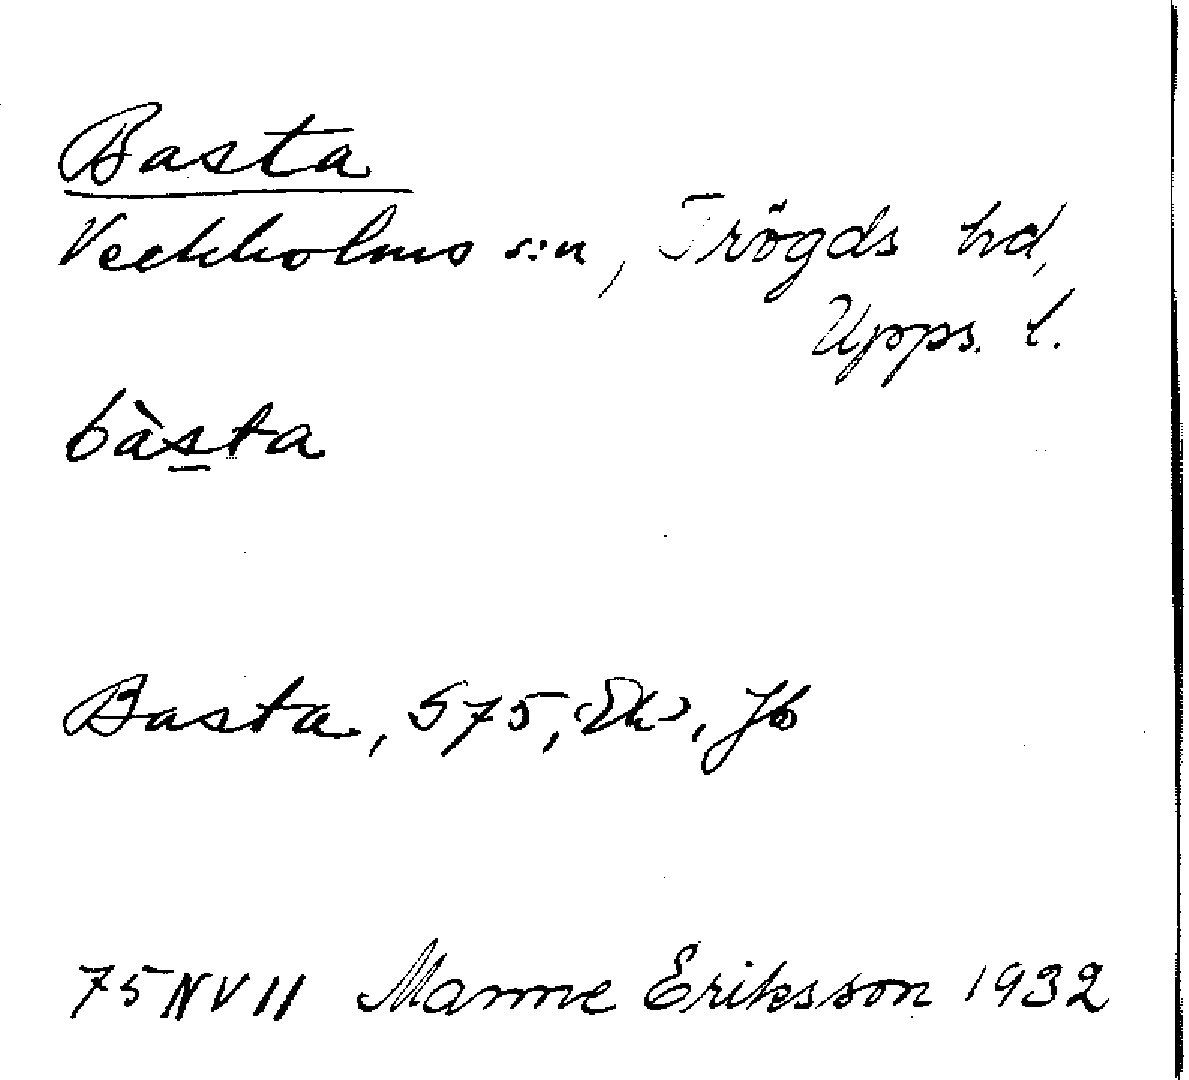 Basta
Veckholms s:n, Trögds hd,
Upps. l.
bàsta
Basta, S75, Ek, Jb
75 NV II Manne Eriksson 1932